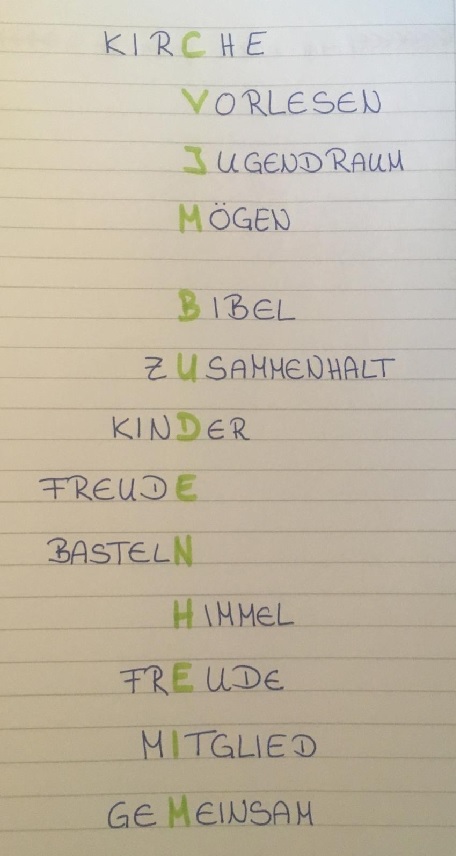 KIRCHE
VORLESEN
JUGENDRAUM
MÖGEN
BIBEL
ZUSAMMENHALT
KINDER
FREUDE
BASTELN
HIMMEL
FREUDE
MITGLIED
GEMEINSAM